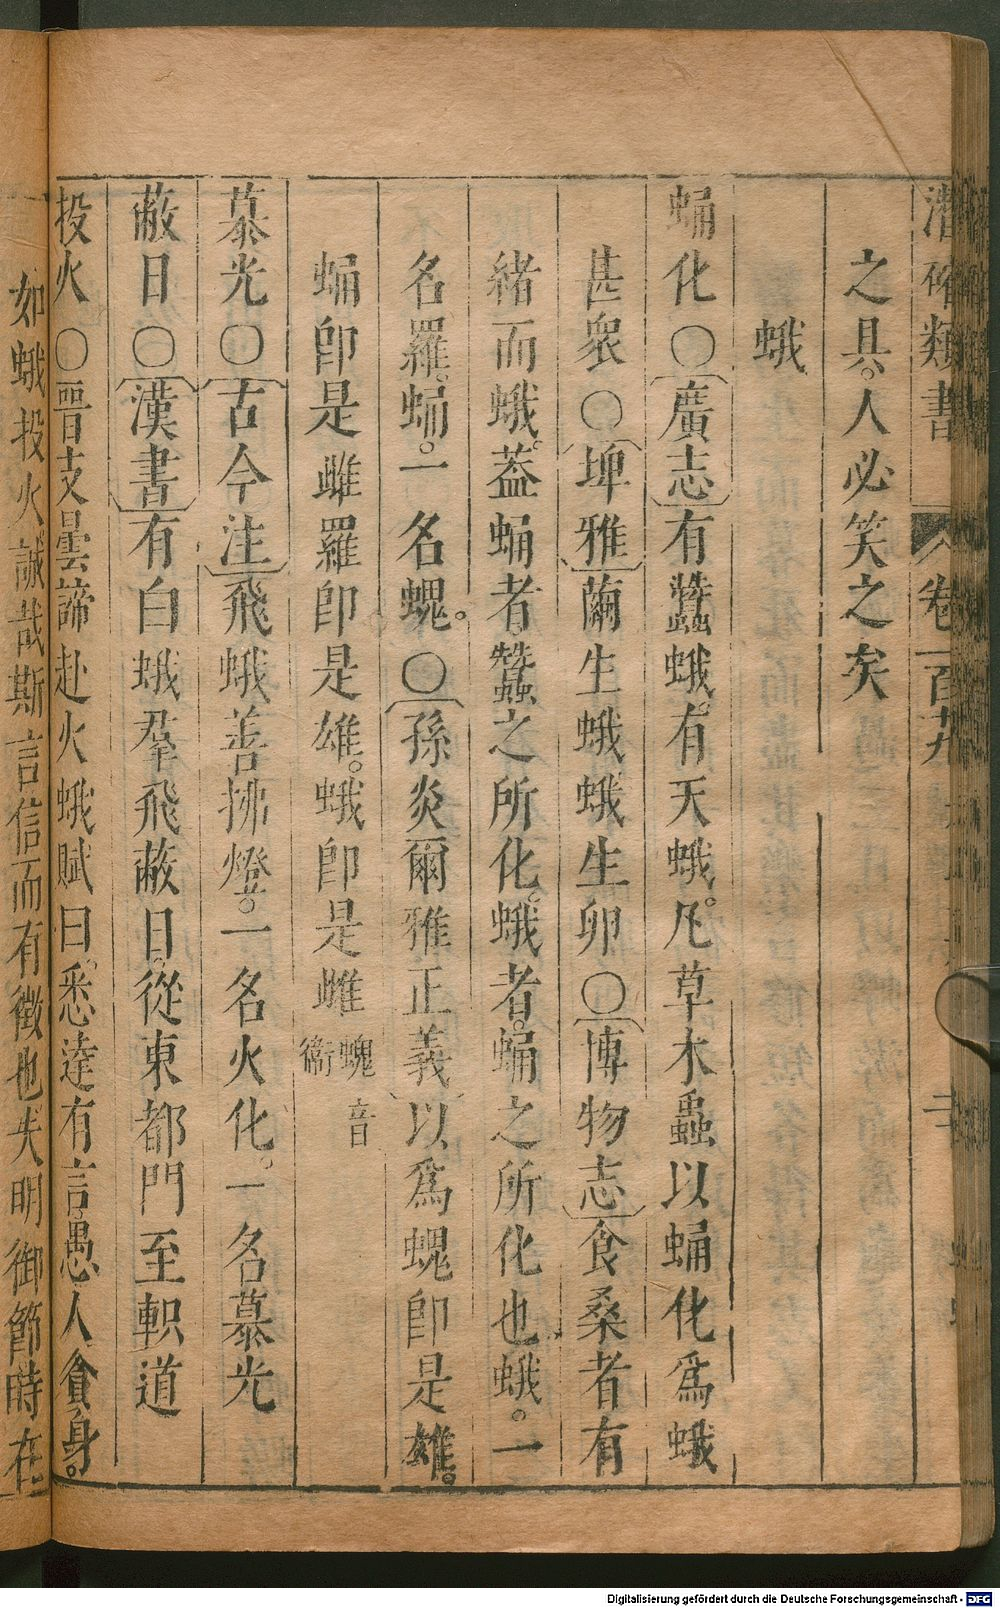 潛確類書 卷一百九
之具。人必笑之矣
蛾
蛹化〇廣志有蠶蛾。有天蛾。凡草木蟲以蛹化爲蛾
甚衆〇埤雅繭生蛾蛾生卵〇博物志食桑者有
緒而蛾。葢蛹者。蠶之所化。蛾者。蛹之所化也蛾。一
名羅。蛹。一名螝。〇孫炎爾雅正義以爲螝卽是雄。
蛹卽是雌羅卽是雄。蛾卽是雌螝音衞
慕光〇古今注飛蛾善拂燈。一名火化。一名慕光
蔽日〇漢書有白蛾羣飛蔽日。從東都門至軹道
投火〇晉支曇諦赴火蛾賦曰。悉達有言。愚人貪身。
如蛾投火。誠哉斯言信而有徵也。夫明御節時在
Digitalisierung gefördert durch die Deutsche Forschungsgemeinschaft - DFG